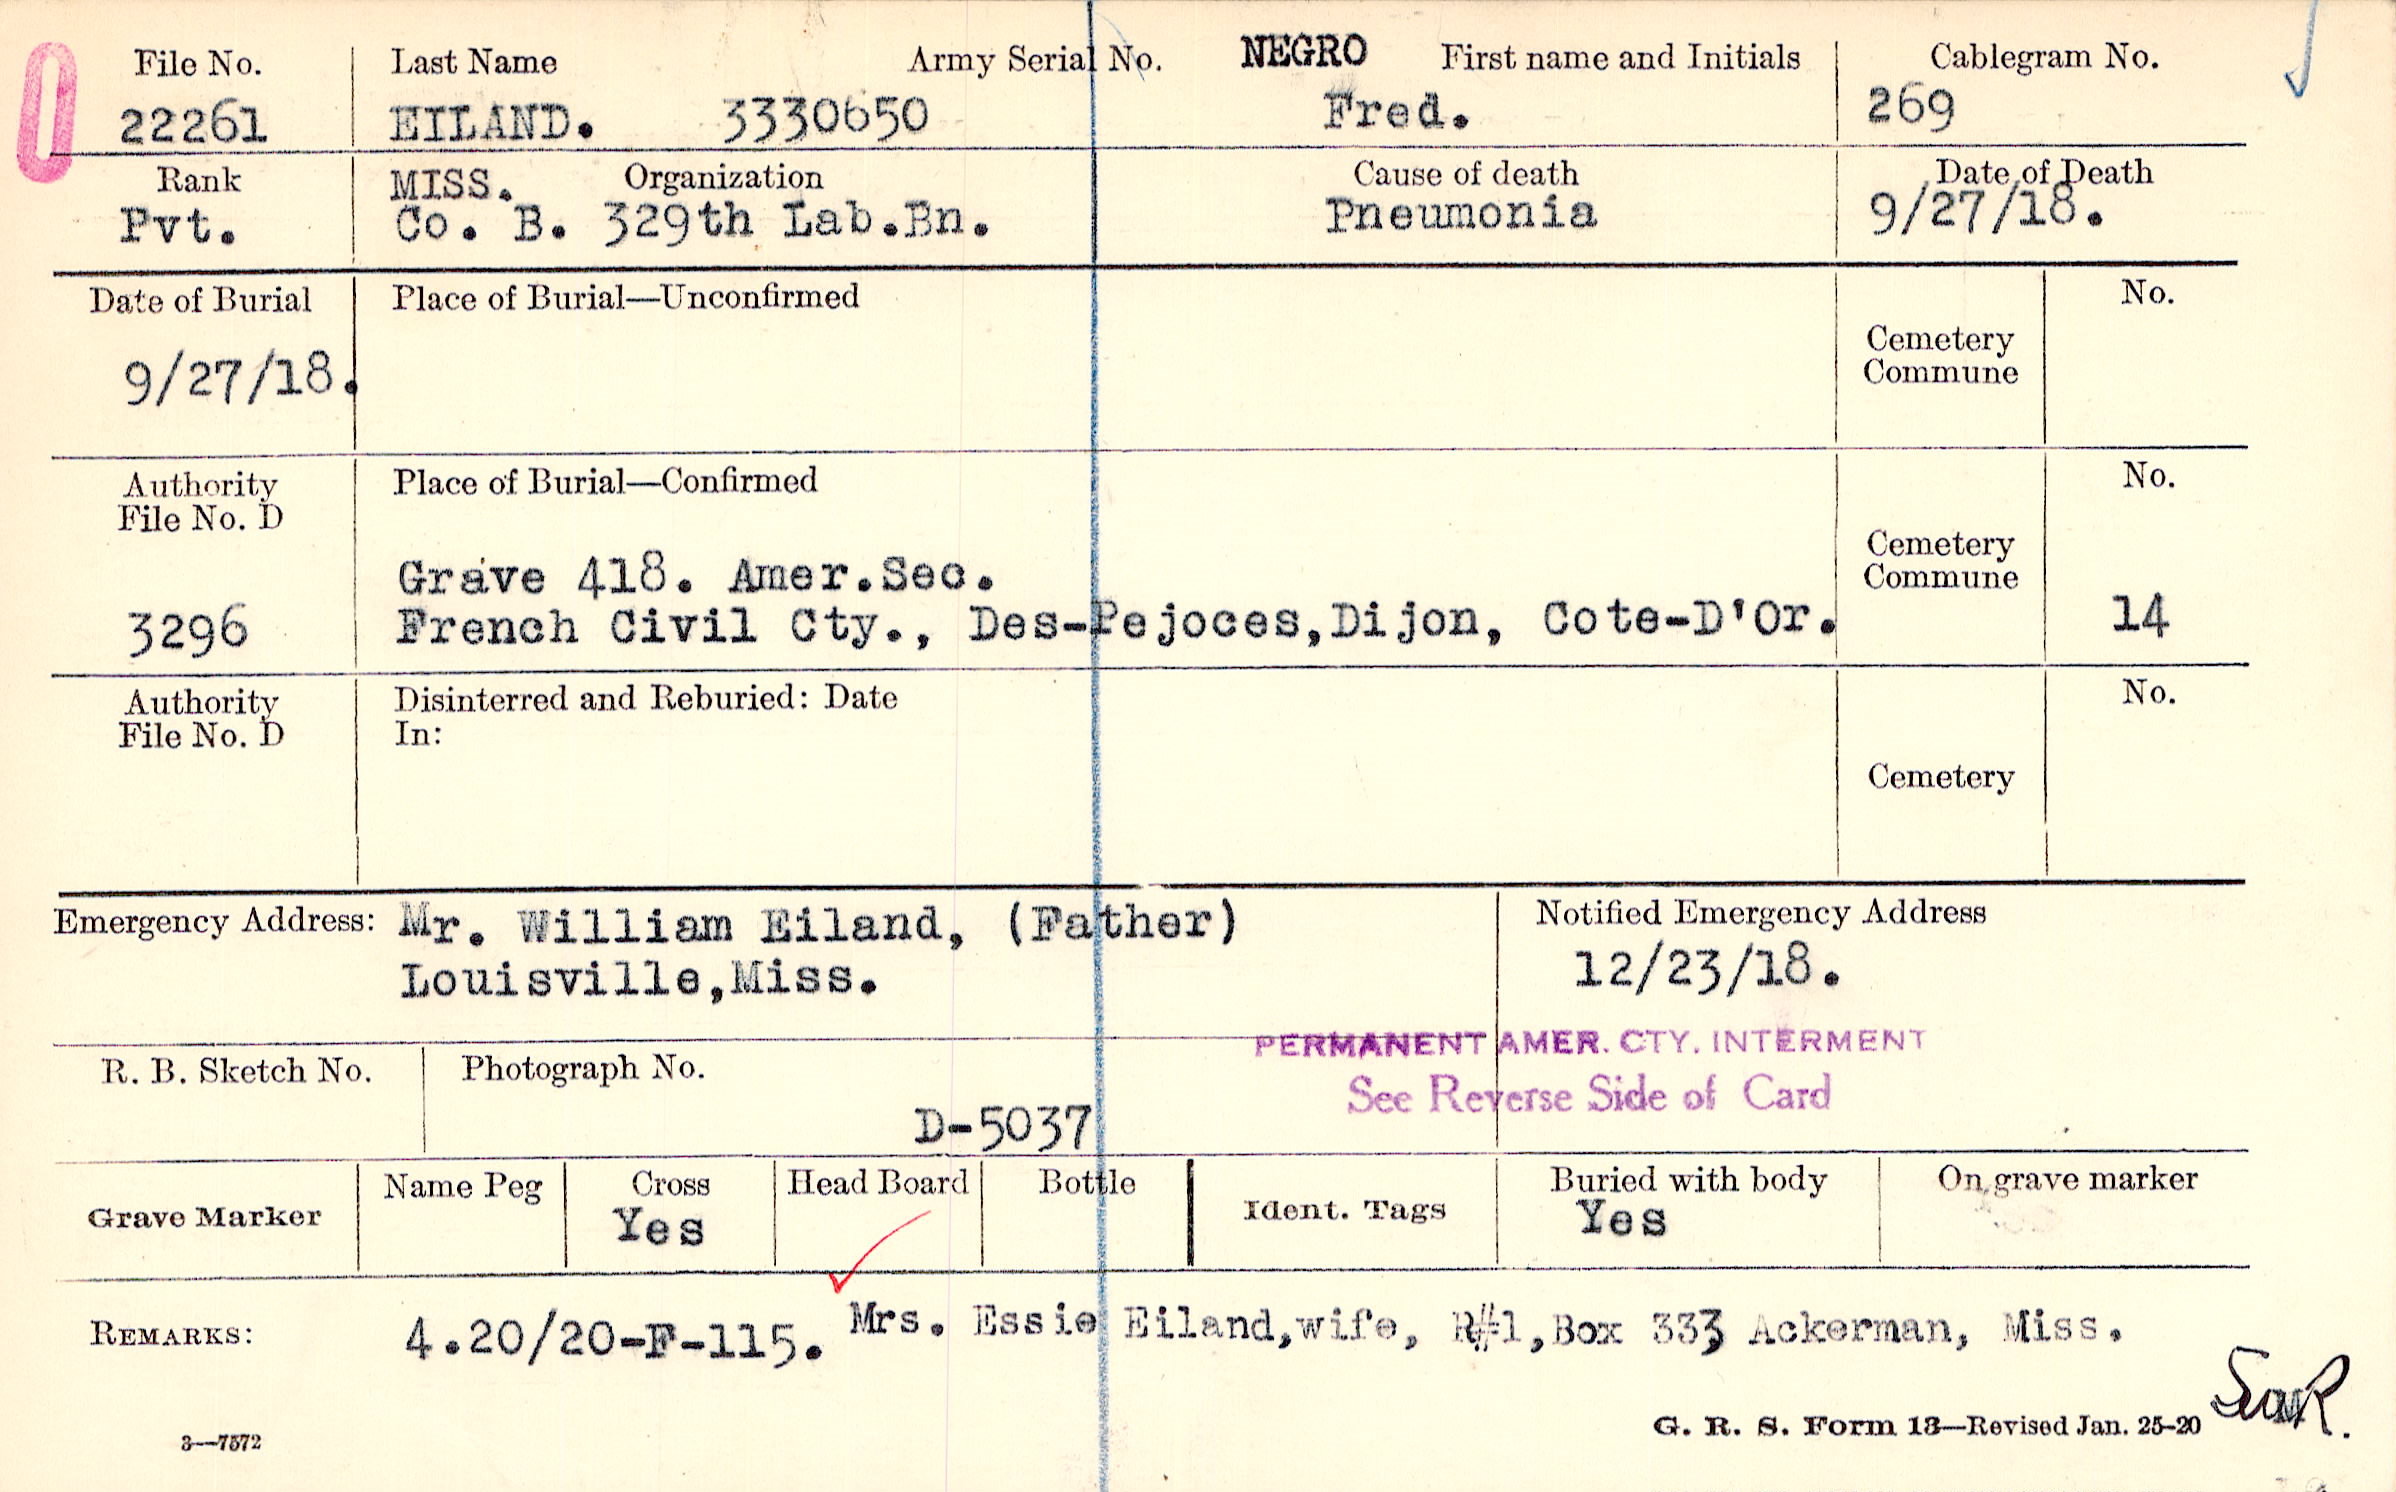 File No. Last Name Army Serial No. NEGRO First name and Initials Cablegram No.
22261 EILAND. 3330650 Fred. 269
Rank MISS. Organization Cause of death Date of Death
Pvt. Co. B. 329th Lab.Bn. Pneumonia 9/27/18.
Date of Burial Place of Burial—Unconfirmed No.
Cemetery
Commune
9/27/18.
Authority Place of Burial—Confirmed No.
File No. D
Cemetery
Commune
Grave 418. Amer.Sec.
3296 French Civil Cty., Des-Pejoces,Dijon, Cote-D'Or. 14
Authority Disinterred and Reburied: Date No.
File No. D In:
Cemetery
Emergency Address: Mr. William Eiland, (Father) Notified Emergency Address
Louisville,Miss. 12/23/18.
PERMANENT AMER. CTY. INTERMENT
R. B. Sketch No. Photograph No. See Reverse Side of Card
D-5037
Grave Marker Name Peg Cross Head Board Bottle Ident. Tags Buried with body On grave marker
Yes Yes
REMARKS: 4.20/20-F-115. Mrs. Essie Eiland,wife, R#1,Box 333 Ackerman, Miss.
3—7572 G. R. S. Form 13—Revised Jan. 25-20